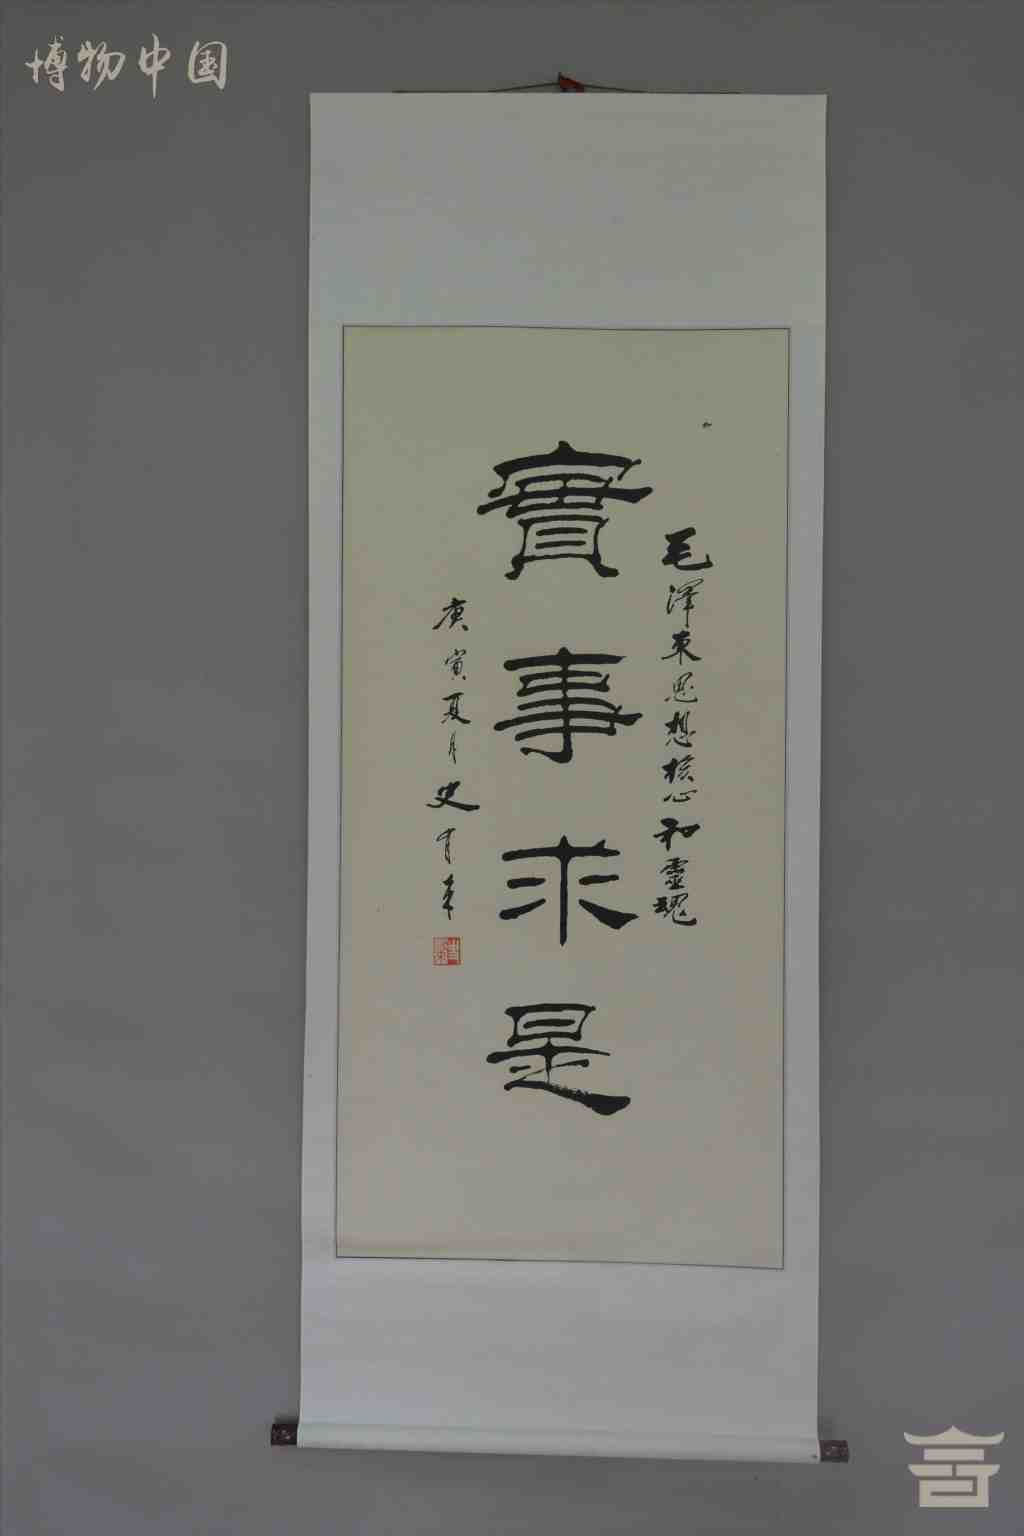 博物中国
毛澤東思想核心和靈魂
實事求是
庚寅夏月史育才